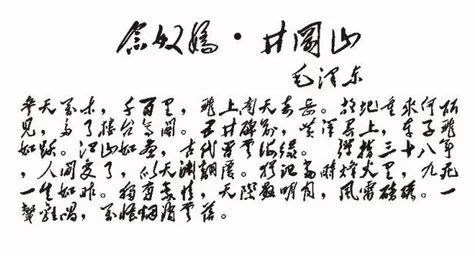 念奴嬌·井岡山
毛泽东
参天萬木，千百里，飛上南天奇岳。故地重来何所
見，多了楼台亭阁。五井碑前，黄洋界上，車子飛
如跃。江山如画，古代曾雲海绿。弹指三十八年
，人间变了，似天渊翻覆。犹记当时烽火里，九死
一生如昨。独有豪情，天際悬明月，風雷磅礴。一
聲雞唱，萬怪烟消雲落。